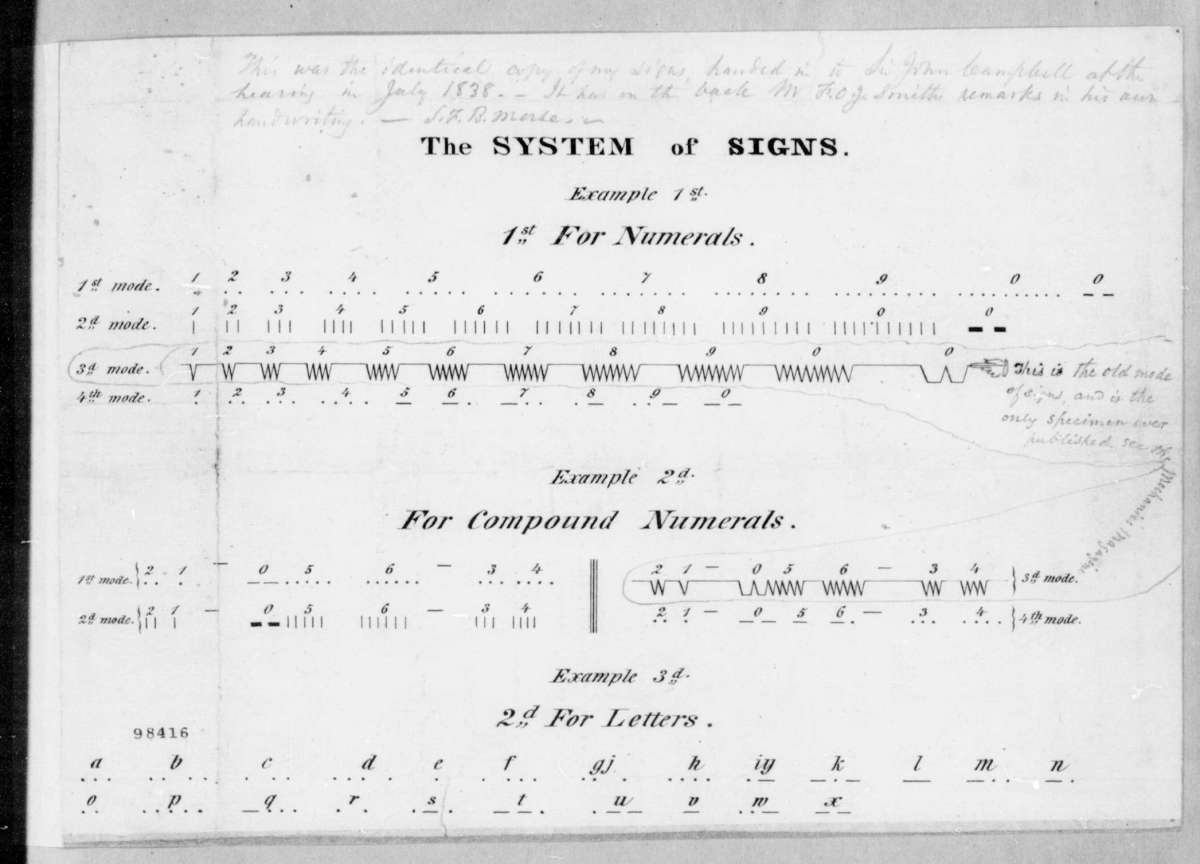 This was the identical copy of my signs, handed in to Sir John Campbell at the
hearing in July 1838. - It has on the back Mr F.O.J. Smith's remarks in his own
handwriting. - S.F.B. Morse.
The SYSTEM of SIGNS.
Example 1st.
1st For Numerals.
1st mode. 1 2 3 4 5 6 7 8 9 0 0
2d mode. 1 2 3 4 5 6 7 8 9 0 0
3d mode. 1 2 3 4 5 6 7 8 9 0 0
This is the old mode
of signs, and is the
only specimen ever
published, see the
Mechanics Magazine
4th mode. 1 2 3 4 5 6 7 8 9 0
Example 2d.
For Compound Numerals.
1st mode. 2 1 — 0 5 6 — 3 4
2 1 — 0 5 6 — 3 4 3d mode.
2d mode. 2 1 — 0 5 6 — 3 4
2 1 — 0 5 6 — 3 4 4th mode.
Example 3d.
2d For Letters.
98416
a b c d e f gj h iy k l m n
o p q r s t u v w x